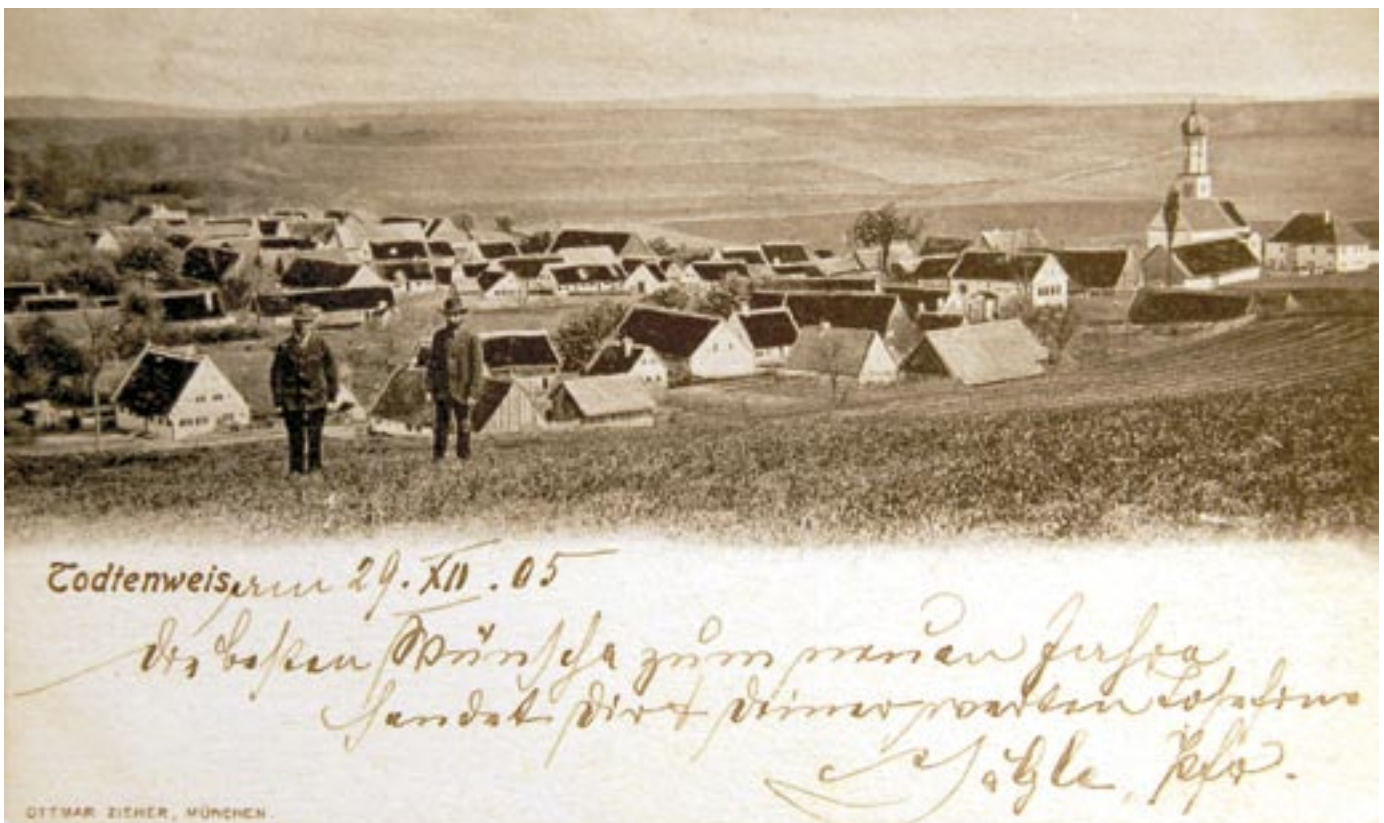 Todtenweis, am 29. XII. 05
Die besten Wünsche zum neuen Jahre
sendet Dir & Deiner werten
Pfr.
OTTMAR ZIEHER, MÜNCHEN.